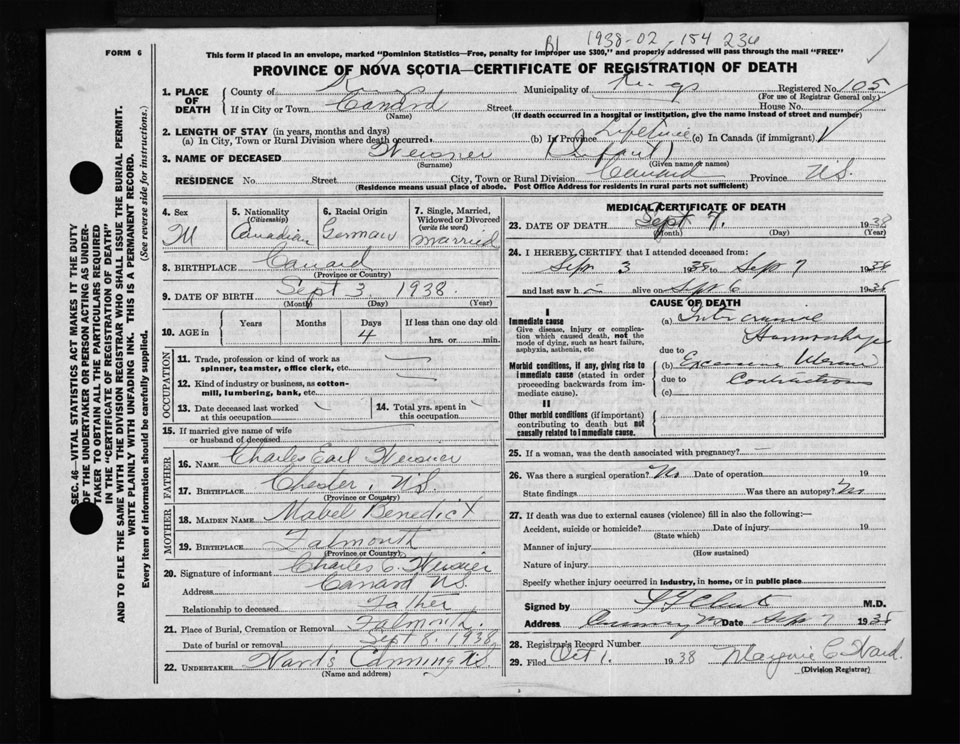 FORM 6
1938-02-154 236
This form if placed in an envelope, marked "Dominion Statistics—Free, penalty for improper use $300," and properly addressed will pass through the mail "FREE"
PROVINCE OF NOVA SCOTIA—CERTIFICATE OF REGISTRATION OF DEATH
1. PLACE OF DEATH
County of Kings Municipality of Kings Registered No. 105
(For use of Registrar General only)
If in City or Town Canard Street House No.
(Name) (If death occurred in a hospital or institution, give the name instead of street and number)
2. LENGTH OF STAY (in years, months and days)
(a) In City, Town or Rural Division where death occurred, (b) In Province Lifetime (c) In Canada (if immigrant)
3. NAME OF DECEASED Weisner (Infant)
(Surname) (Given name or names)
RESIDENCE No. Street City, Town or Rural Division Canard Province N.S.
(Residence means usual place of abode. Post Office Address for residents in rural parts not sufficient)
SEC. 46—VITAL STATISTICS ACT MAKES IT THE DUTY
OF THE UNDERTAKER OR PERSON ACTING AS UNDER-
TAKER TO OBTAIN ALL THE PARTICULARS REQUIRED
IN THE "CERTIFICATE OF REGISTRATION OF DEATH"
AND TO FILE THE SAME WITH THE DIVISION REGISTRAR WHO SHALL ISSUE THE BURIAL PERMIT.
WRITE PLAINLY WITH UNFADING INK. THIS IS A PERMANENT RECORD.
Every item of information should be carefully supplied. (See reverse side for instructions.)
4. Sex
M
5. Nationality
(Citizenship)
Canadian
6. Racial Origin
German
7. Single, Married, Widowed or Divorced
(write the word)
Married
8. BIRTHPLACE Canard
(Province or Country)
9. DATE OF BIRTH Sept 3, 1938.
(Month) (Day) (Year)
10. AGE in
Years Months Days If less than one day old
4 hrs. or min.
OCCUPATION
11. Trade, profession or kind of work as
spinner, teamster, office clerk, etc.
12. Kind of industry or business, as cotton-
mill, lumbering, bank, etc.
13. Date deceased last worked at this occupation
14. Total yrs. spent in this occupation
15. If married give name of wife or husband of deceased
FATHER
16. NAME Charles Earl Weisner
17. BIRTHPLACE Chester, N.S.
(Province or Country)
MOTHER
18. MAIDEN NAME Mabel Benedict
19. BIRTHPLACE Falmouth
(Province or Country)
20. Signature of informant Charles E. Weisner
Address Canard N.S.
Relationship to deceased Father
21. Place of Burial, Cremation or Removal Falmouth.
Date of burial or removal Sept 8. 1938
22. UNDERTAKER Ward's Canning N.S.
(Name and address)
MEDICAL CERTIFICATE OF DEATH
23. DATE OF DEATH Sept 7. 1938
(Month) (Day) (Year)
24. I HEREBY CERTIFY that I attended deceased from:
Sept 3 1938 to Sept 7 1938
and last saw h alive on Sept 6 1938
CAUSE OF DEATH
I
Immediate cause
Give disease, injury or complica-
tion which caused death, not the
mode of dying, such as heart failure,
asphyxia, asthenia, etc
(a) Hemorrhage
due to
Morbid conditions, if any, giving rise to
immediate cause (stated in order
proceeding backwards from im-
mediate cause).
(b) Uterine
due to Contractions
(c)
II
Other morbid conditions (if important)
contributing to death but not
causally related to Immediate cause.
25. If a woman, was the death associated with pregnancy?
26. Was there a surgical operation? No Date of operation 19
State findings Was there an autopsy? No
27. If death was due to external causes (violence) fill in also the following:—
Accident, suicide or homicide? Date of injury 19
(State which)
Manner of injury
(How sustained)
Nature of injury
Specify whether injury occurred in industry, in home, or in public place
Signed by M.D.
Address Date Sept 7 1938
28. Registrar's Record Number
29. Filed Oct 1. 1938 Marjorie C. Ward.
(Division Registrar)